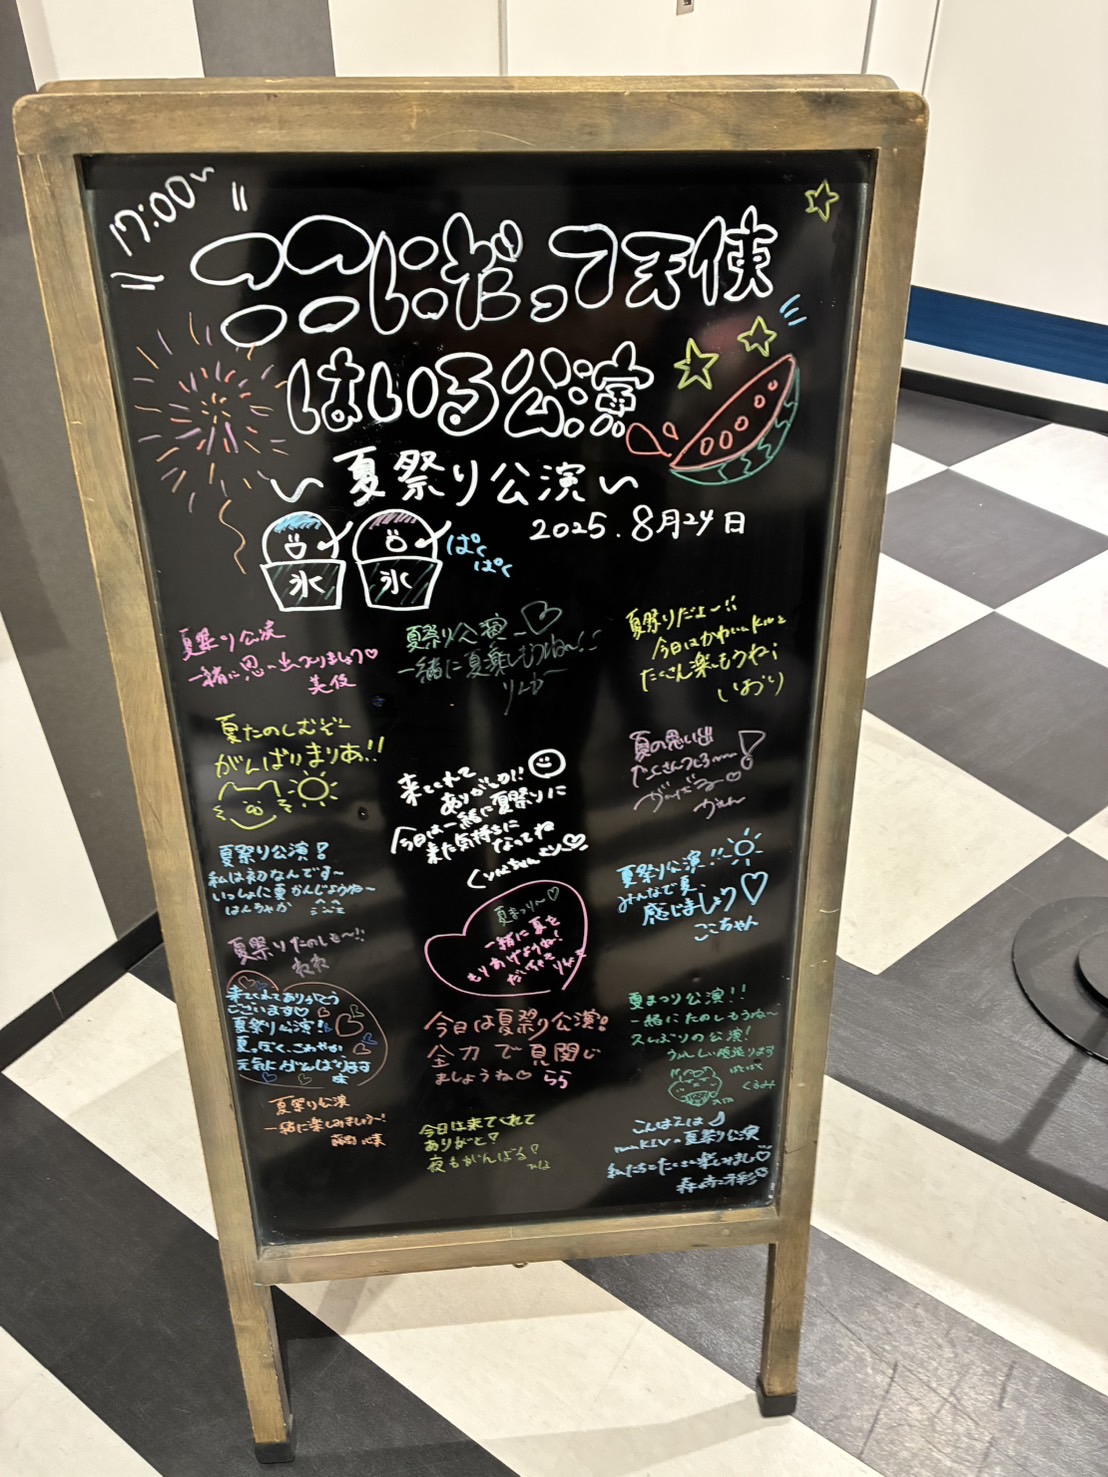 17:00~
ここにだって天使
はいる公演
~夏祭り公演~
2025.8月24日
氷 氷
ぱく
ぱく
夏祭り公演
一緒に思い出つくりましょう♡
美優
夏祭り公演~♡
一緒に夏楽しもうね~!!
りんか
夏祭りだよ~!!
今日はかわいいKIVと
たくさん楽もうね!
いおり
夏たのしむぞー
がんばりまりあ!!
来てくれて
ありがとう!!
今日は一緒に夏祭りに
来た気持ちに
なってね
夏の思い出
たくさんつくろ
夏祭り公演!
私は初なんです~
いっしょに夏かんじようね~
夏祭り公演!!
みんなで夏、
感じましょう♡
ここちゃん
夏祭りたのしも~!!
ねね
夏まつり~♡
一緒に夏を
もりあげようね!
来てくれてありがとう
ございます♡
夏祭り公演!
夏っぽく、さわやか
元気にがんばります
今日は夏祭り公演!
全力で見関い
ましょうね♡ らら
夏まつり公演!!
一緒にたのしもうね~
久しぶりの公演!
うれしい頑張ります
くるみ
夏祭り公演
一緒に楽しみましょう~!
今日は来てくれて
ありがと!
夜もがんばる!
こんばんは
夏祭り公演
私たちとたくさん楽しみましょ♡